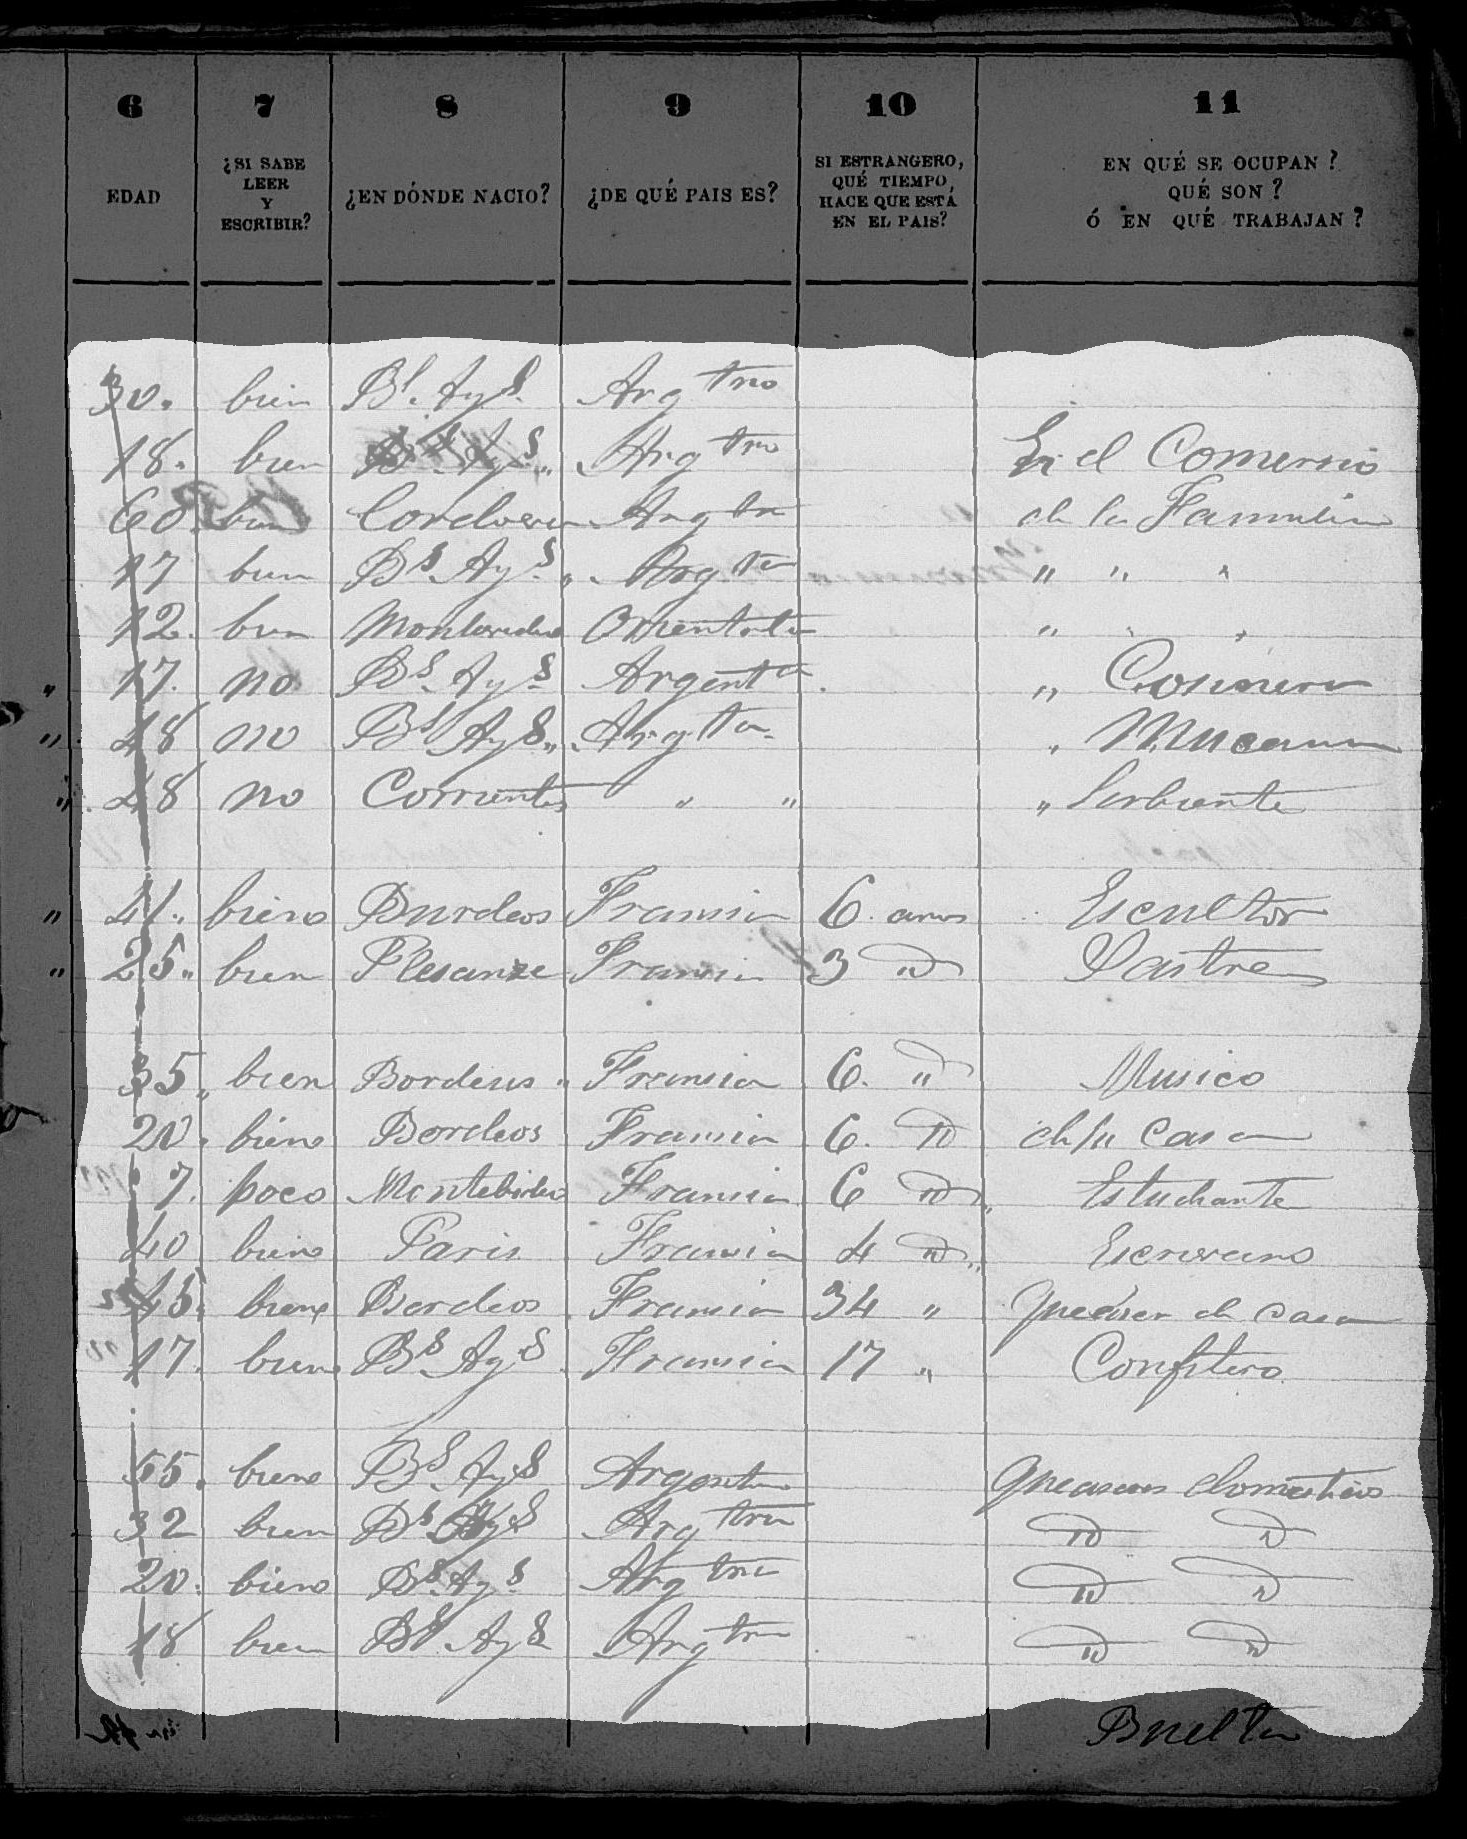 6 7 8 9 10 11
EDAD ¿SI SABE LEER Y ESCRIBIR? ¿EN DÓNDE NACIO? ¿DE QUÉ PAIS ES? SI ESTRANGERO, QUÉ TIEMPO HACE QUE ESTÁ EN EL PAIS? EN QUÉ SE OCUPAN? QUÉ SON? Ó EN QUÉ TRABAJAN?
30. bien Bs. Ays. Argtno
18. bien Bs Ays " Argtno En el Comersio
60 bien Argtn de la Familia
17 bien Bs Ays " Argtn " " "
12. bien Montevideo Orientala " " "
" 17. no Bs Ays Argenta " Cosinera
" 48 no Bs Ays " Argta " Mucama
" 48 no Corrientes " " " Sirbiente
" 41. biene Burdeos Fransia 6 anos Escultor
" 25. bien Plesanze Fransia 3 " Sastre
35 " bien Bordeus " Fransia 6. " Musico
20. biene Bordeos Fransia 6. " de su Casa
7. poco Montebideo Fransia 6 " Estudiante
40 biene Paris Fransia 4 " Escrivano
45. biene Bordeos Fransia 34 " de casa
17. biene Bs Ays Fransia 17 " Confitero
55. biene Bs Ays Argentn domesticos
32 bien Bs Ays Argtna " "
20. biene Bs. Ays Argtna " "
18 bien Bs Ays Argtna " "
Buelta